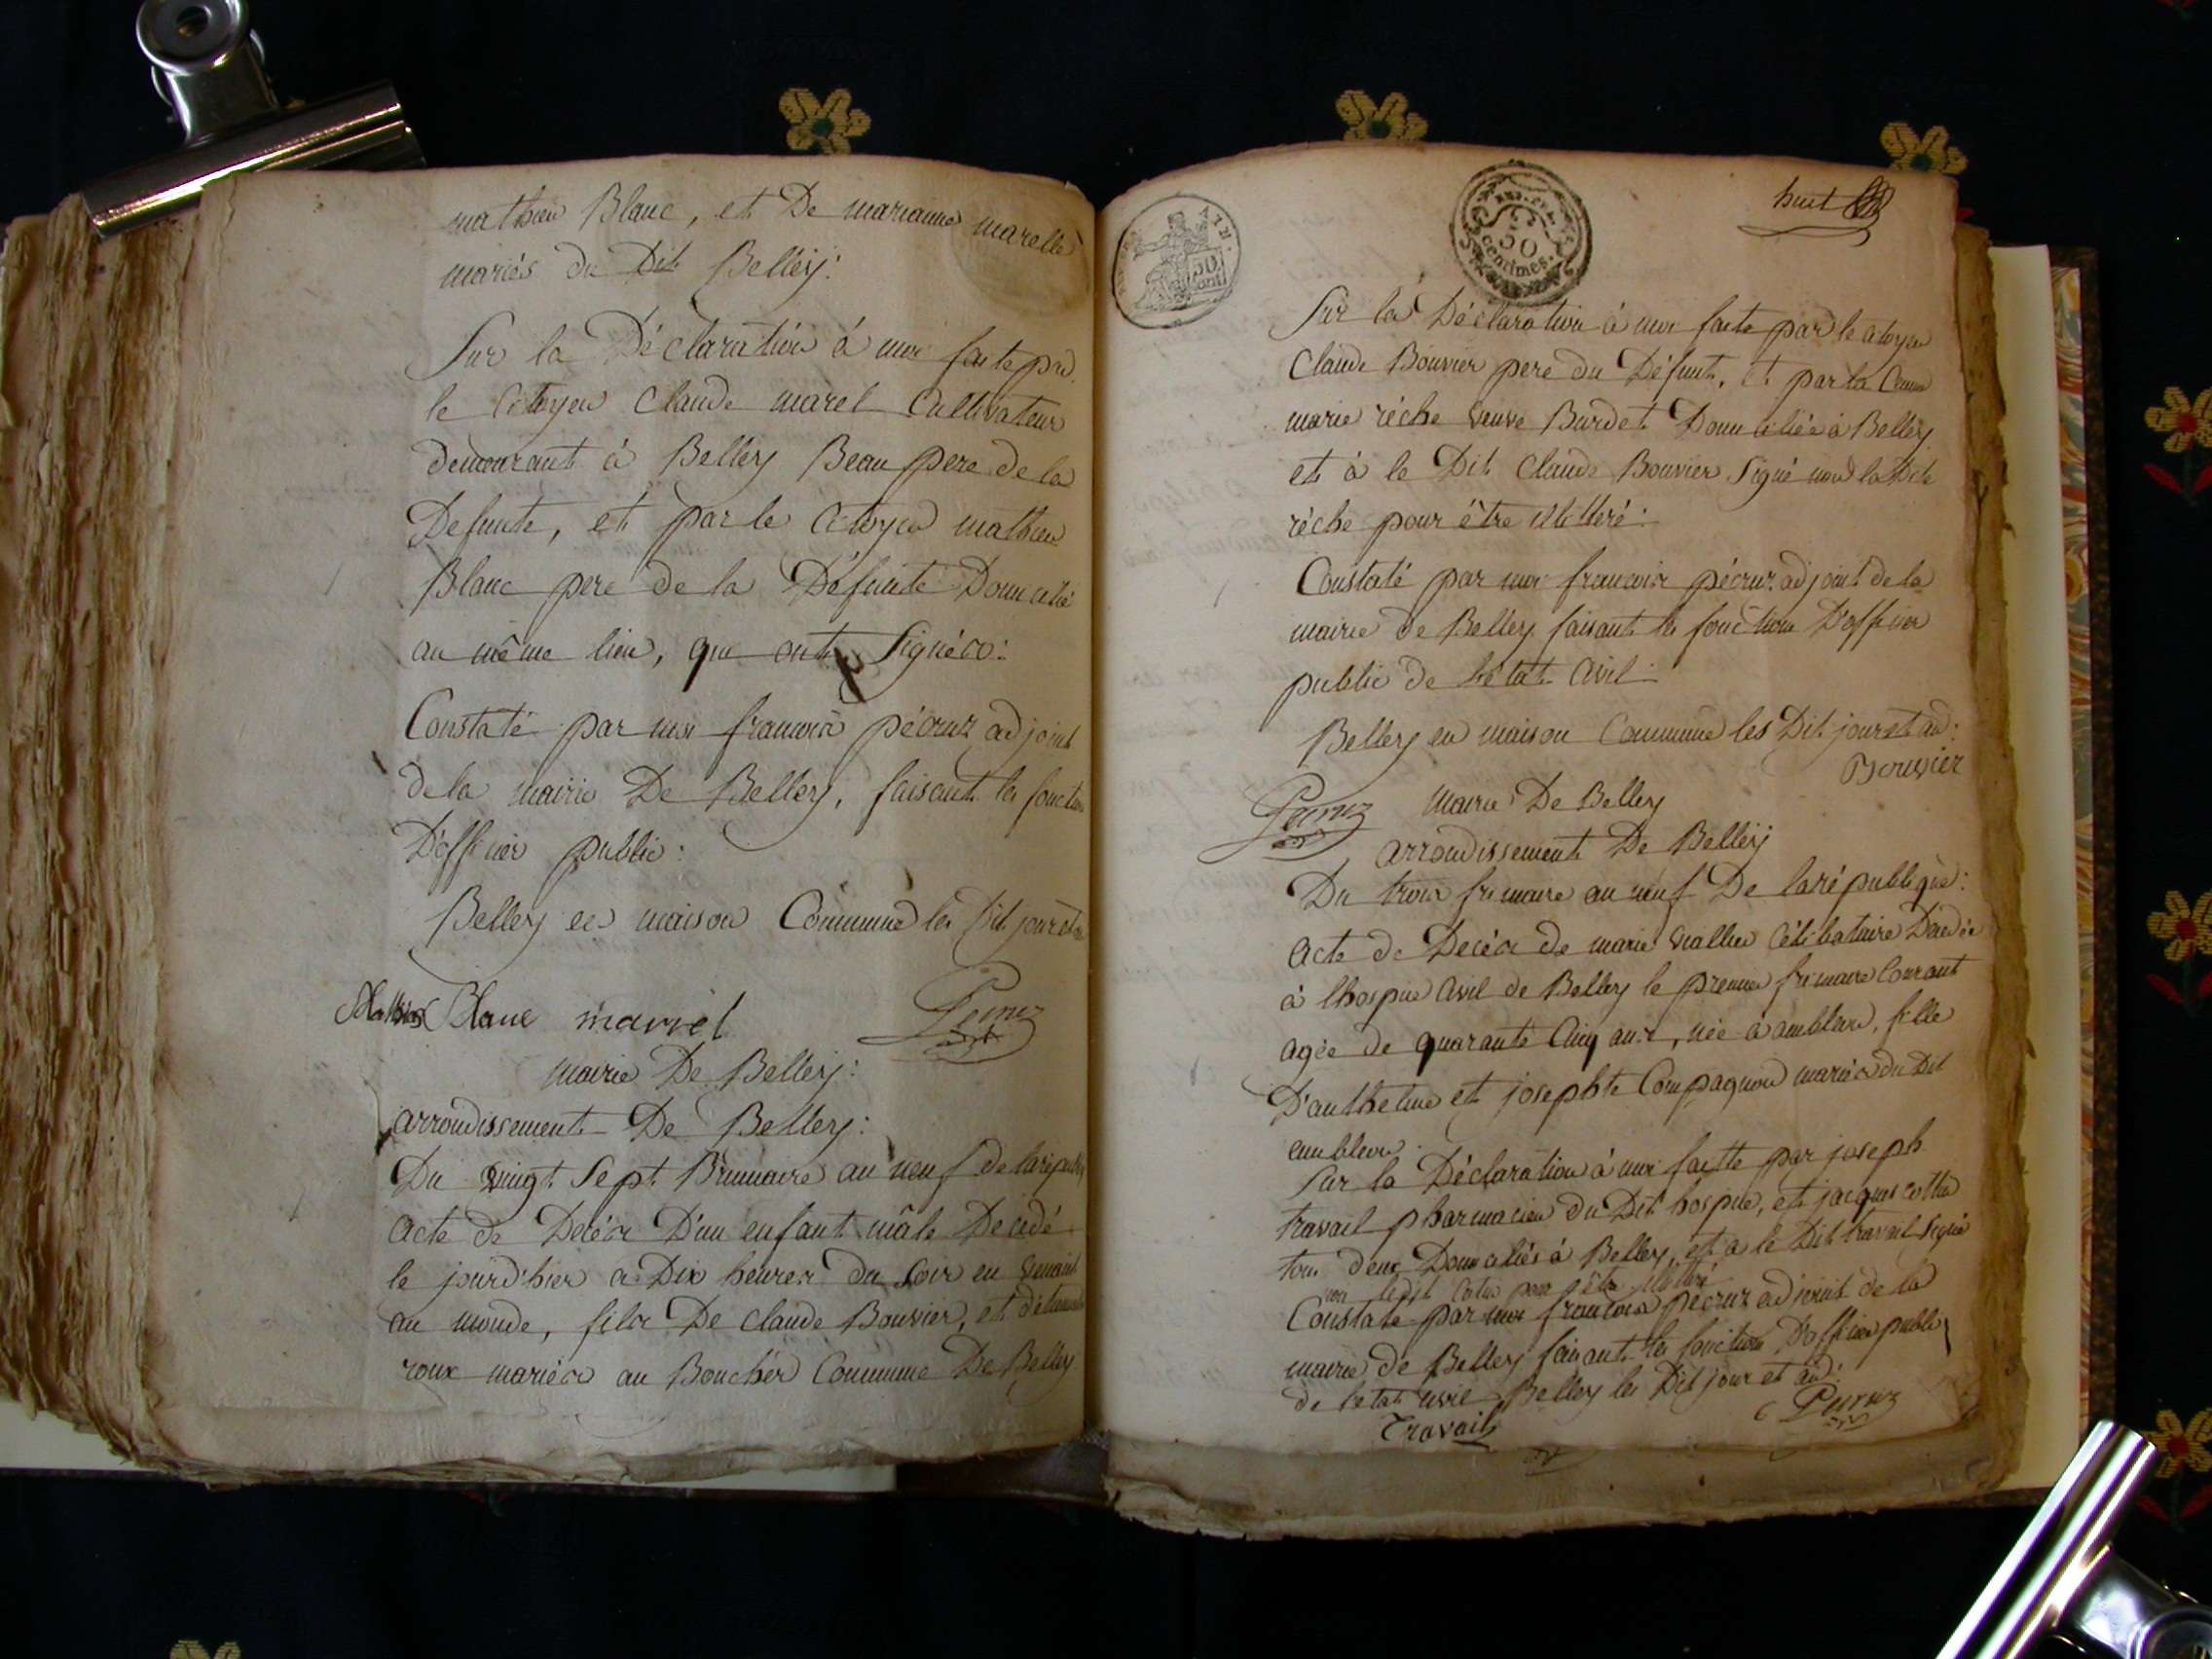 mathieu Blanc, et De marianne marelle
mariés du Dit Belley:
Sur la Déclaration à moi faite par
le Citoyen Claude marel Cultivateur
demeurant à Belley Beau pere de la
Defunte, et par le Citoyen mathieu
Blanc pere de la Défunte Domicilié
au même lieu, qui ont Signés:
Constaté par moi francois pécruz adjoint
de la mairie De Belley, faisant les fonction
D'officier public:
Belley en maison Commune les Dit jour et an
Mathieu Blanc marrel Pecruz
mairie De Belley:
arrondissement De Belley:
Du vingt Sept Brumaire an neuf de la répub
Acte de Décés D'un enfant mâle Decédé
le jourd'hier a Dix heures du Soir en venant
au monde, fils De Claude Bouvier, et
roux mariés au Boucher Commune De Belley
AN.
50
cent
50
centimes.
huit
Sur la Déclaration à moi faite par le citoyen
Claude Bouvier pere du Défunt, et par la Citoyenne
marie réche veuve Burdet Domiciliée à Belley
et à le Dit Claude Bouvier Signé non la Dite
réche pour être illitteré:
Constaté par moi francois pécruz adjoint de la
mairie de Belley faisant les fonction D'officier
public de l'état Civil:
Belley en maison Commune les Dit jour et an:
Bouvier
Pecruz
Mairie De Belley
arrondissement De Belley
Du trois frimaire an neuf De la république:
Acte de Decés de marie Célibataire Décédée
à l'hospice Civil de Belley le premier frimaire Courant
agée de quarante Cinq ans, née à ambleon, fille
D'anthelme et josephte Compagnon mariés du Dit
ambleon.
Sur la Déclaration à moi faitte par joseph
travail pharmacien du Dit hospice, et jacques cottin
tous deux Domiciliés à Belley, et a le Dit travail Signé
non ledit Cotin pour être illitteré
Constaté par moi francois pécruz adjoint de la
mairie de Belley faisant les fonction D'officier public
de l'etat civil Belley les Dit jour et an:
Travail Pecruz